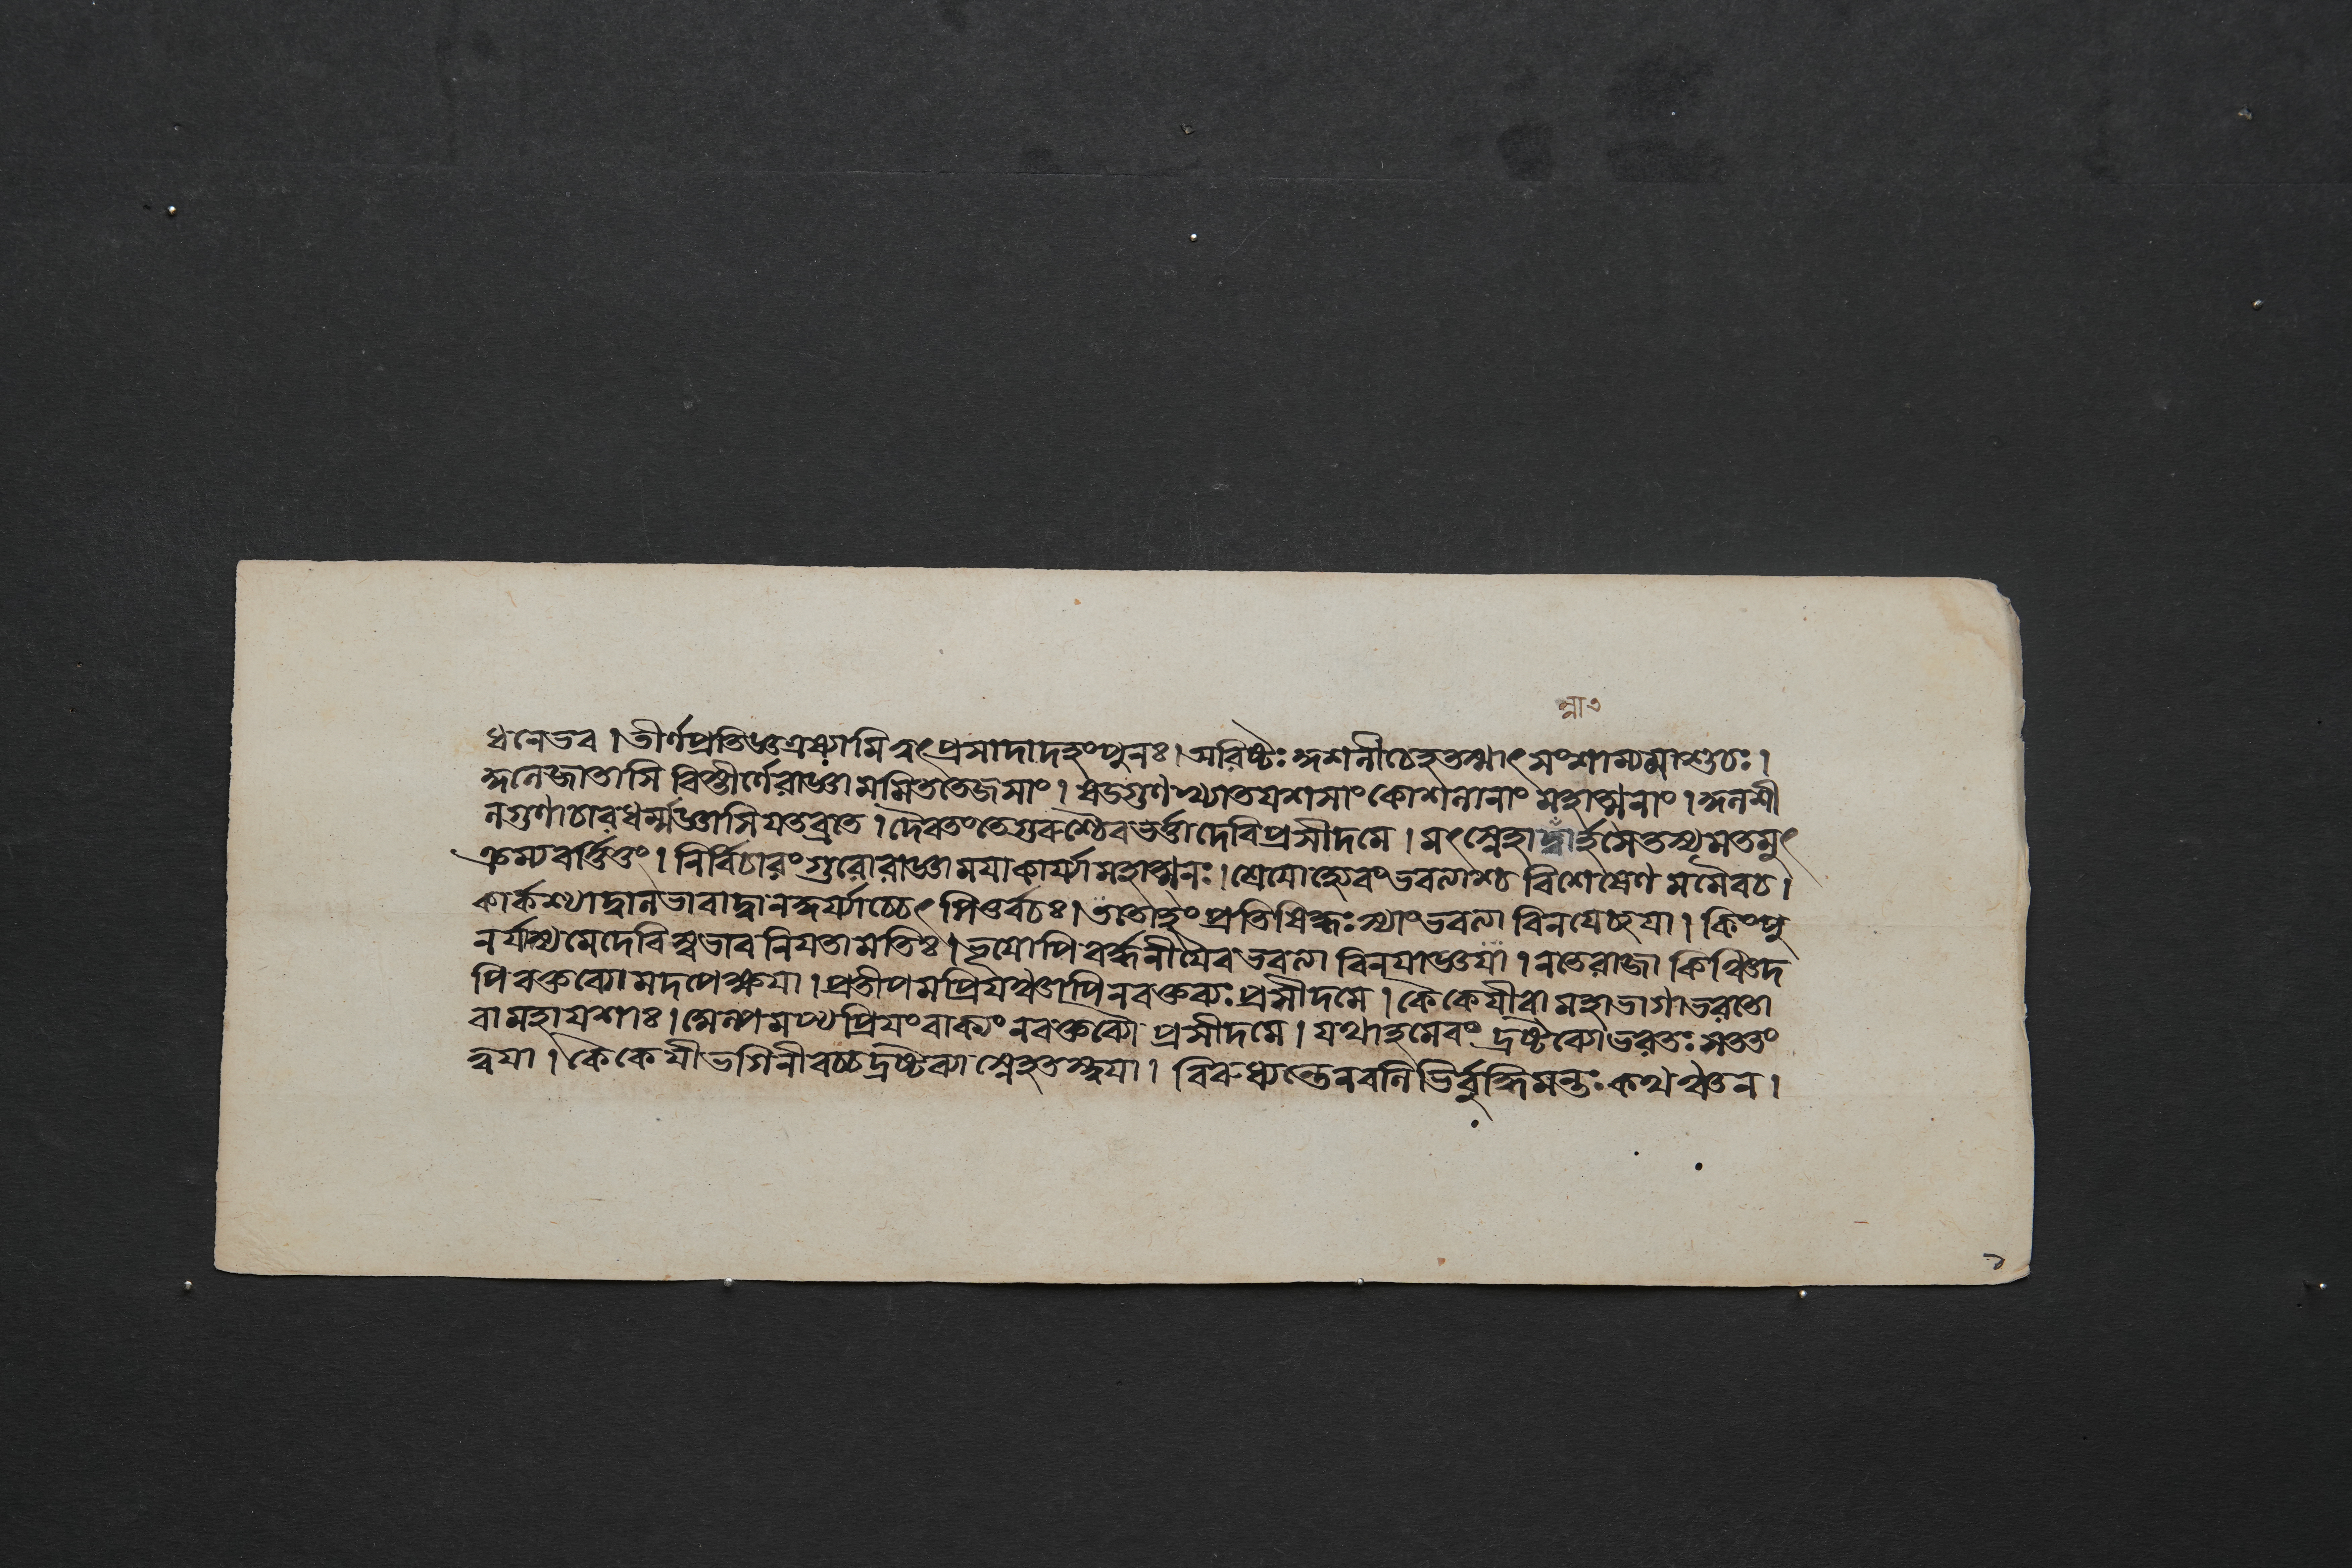 ন্না৩
ধনেভব। তীর্ণপ্রতিজ্ঞএষ্যামি ত্বৎপ্রসাদাদহংপুনঃ। অরিষ্টঃ কুশলীচেহতস্মাৎ সংশাম্যমাশুচঃ।
কুলেজাতাসি বিস্তীর্ণেরাজ্ঞামমিততেজসাং। গুণখ্যাতযশসাং কোশলানাং মহাত্মনাং। কুলশী
লগুণাচারধর্ম্মজ্ঞাসিযতব্রতে। দৈবতংতেগুরুশ্চৈবভর্ত্তাদেবিপ্রসীদমে। মৎস্নেহান্নার্হসেতস্যমতমুৎ
ক্রম্যবর্ত্তিতুং। নির্বিচারংগুরোরাজ্ঞামযাকার্য্যামহাত্মনঃ। শ্রেযোহ্যেবংভবত্যাশ্চ বিশেষেণ মমৈবচ।
কার্কশ্যাদ্বালভাবাদ্বানকুর্য্যাচ্চেৎ পিতুর্বচঃ। ততোহং প্রতিষিদ্ধঃ স্যাংভবত্যা বিনযেচ্ছযা। কিংপু
নর্যস্যমেদেবি স্বভাবনিযতামতিঃ। ভূযোপি বর্দ্ধনীযৈবভবত্যা বিনযাজ্ঞযা। নতেরাজা কিঞ্চিদ
পি বক্তব্যোমদপেক্ষযা। প্রতীপমপ্রিযঞ্চাপিনবক্তব্যঃ প্রসীদমে। কৈকেযীবা মহাভাগাভরতো
বামহাযশাঃ। স্বল্পমপ্যপ্রিযংবাক্যং নবক্তব্যৌ প্রসীদমে। যথাহমেবং দ্রষ্টব্যোভরতঃ সততং
ত্বযা। কৈকেযীভগিনীবচ্চদ্রষ্টব্যা স্নেহতস্ত্বযা। বিরুধ্যন্তেনবলিভির্বুদ্ধিমন্তঃ কথঞ্চন।